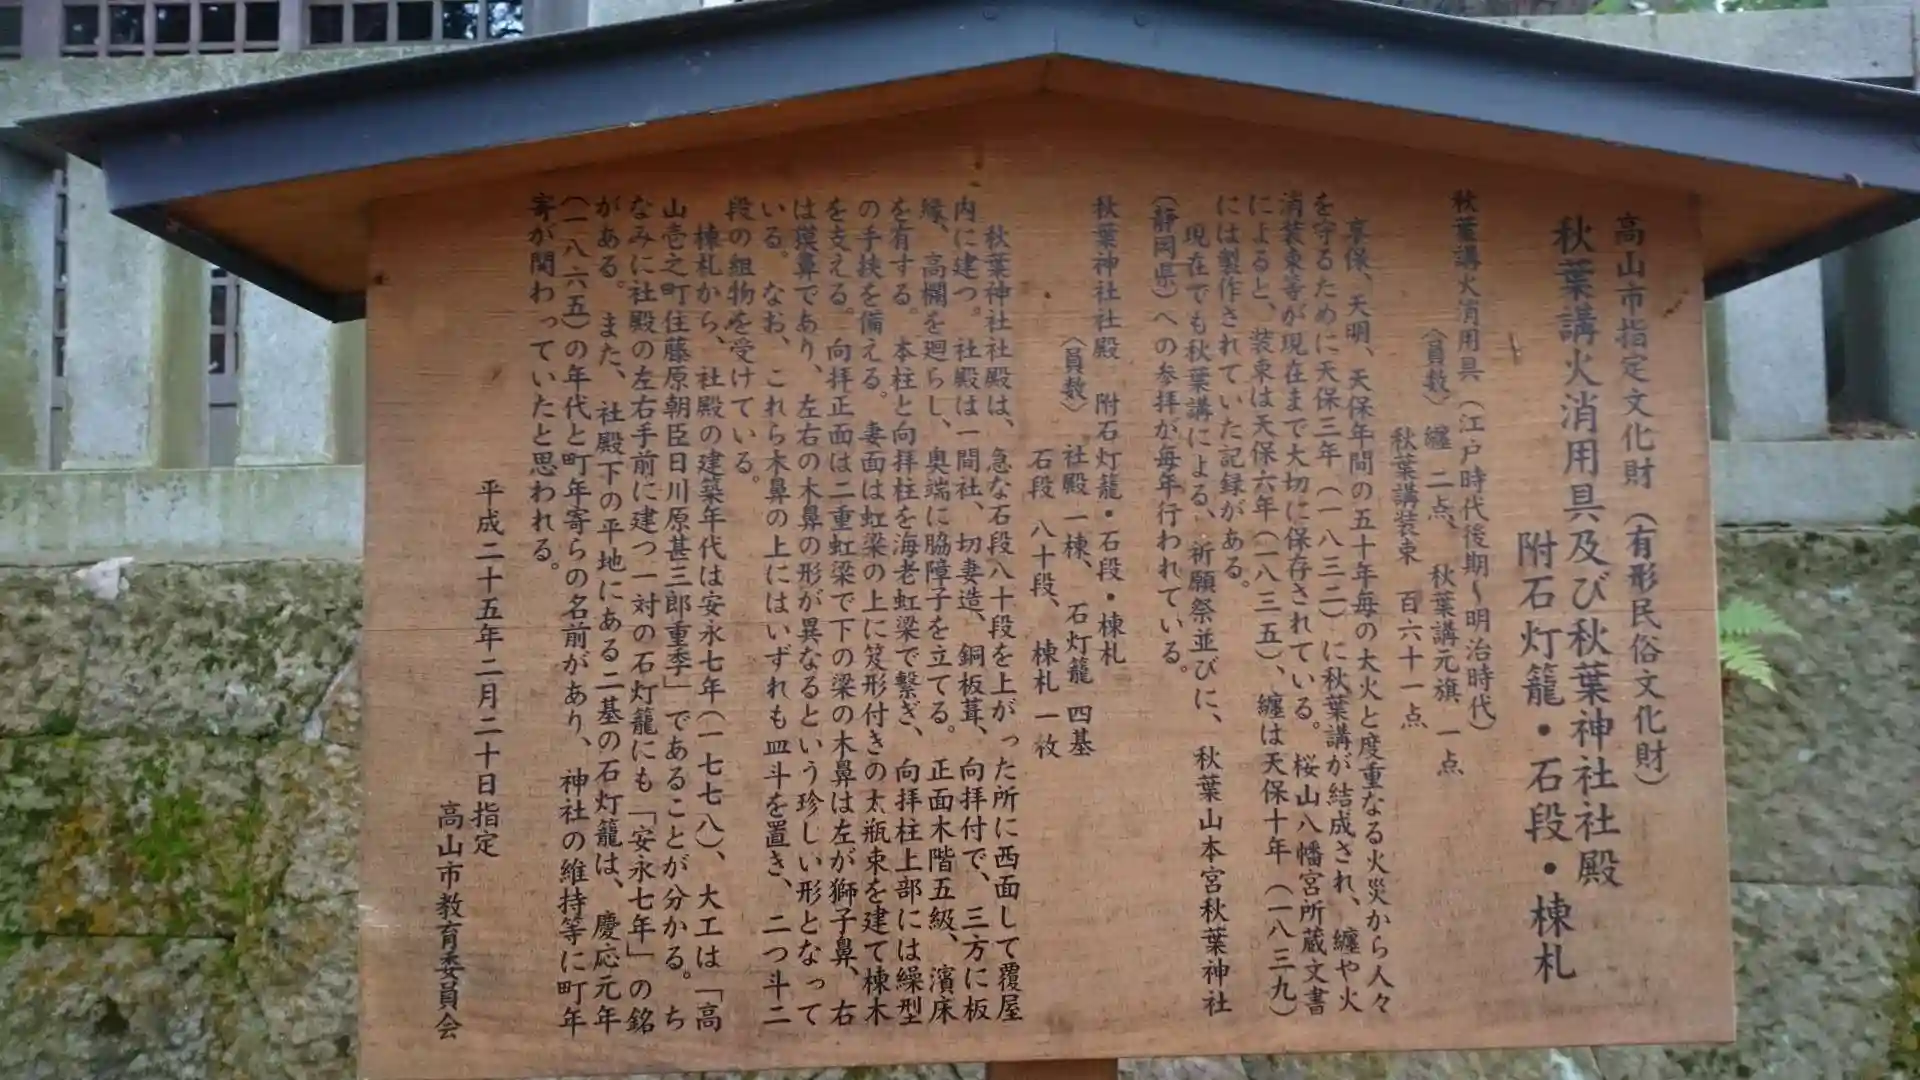 高山市指定文化財（有形民俗文化財）
秋葉講火消用具及び秋葉神社社殿
附石灯籠・石段・棟札
秋葉講火消用具（江戸時代後期～明治時代）
〈員数〉纏 二点、秋葉講元旗 一点
秋葉講装束 百六十一点
享保、天明、天保年間の五十年毎の大火と度重なる火災から人々
を守るために天保三年（一八三二）に秋葉講が結成され、纏や火
消装束等が現在まで大切に保存されている。桜山八幡宮所蔵文書
によると、装束は天保六年（一八三五）、纏は天保十年（一八三九）
には製作されていた記録がある。
現在でも秋葉講による、祈願祭並びに、秋葉山本宮秋葉神社
（静岡県）への参拝が毎年行われている。
秋葉神社社殿 附石灯籠・石段・棟札
〈員数〉 社殿 一棟、石灯籠 四基
石段 八十段、棟札 一枚
秋葉神社社殿は、急な石段八十段を上がった所に西面して覆屋
内に建つ。社殿は一間社、切妻造、銅板葺、向拝付で、三方に板
縁、高欄を廻らし、奥端に脇障子を立てる。正面木階五級、濱床
を有する。本柱と向拝柱を海老虹梁で繋ぎ、向拝柱上部には繰型
の手挟を備える。妻面は虹梁の上に笈形付きの太瓶束を建て棟木
を支える。向拝正面は二重虹梁で下の梁の木鼻は左が獅子鼻、右
は獏鼻であり、左右の木鼻の形が異なるという珍しい形となって
いる。なお、これら木鼻の上にはいずれも皿斗を置き、二つ斗二
段の組物を受けている。
棟札から、社殿の建築年代は安永七年（一七七八）、大工は「高
山壱之町住藤原朝臣日川原甚三郎重季」であることが分かる。ち
なみに社殿の左右手前に建つ一対の石灯籠にも「安永七年」の銘
がある。また、社殿下の平地にある二基の石灯籠は、慶応元年
（一八六五）の年代と町年寄らの名前があり、神社の維持等に町年
寄が関わっていたと思われる。
平成二十五年二月二十日指定
高山市教育委員会